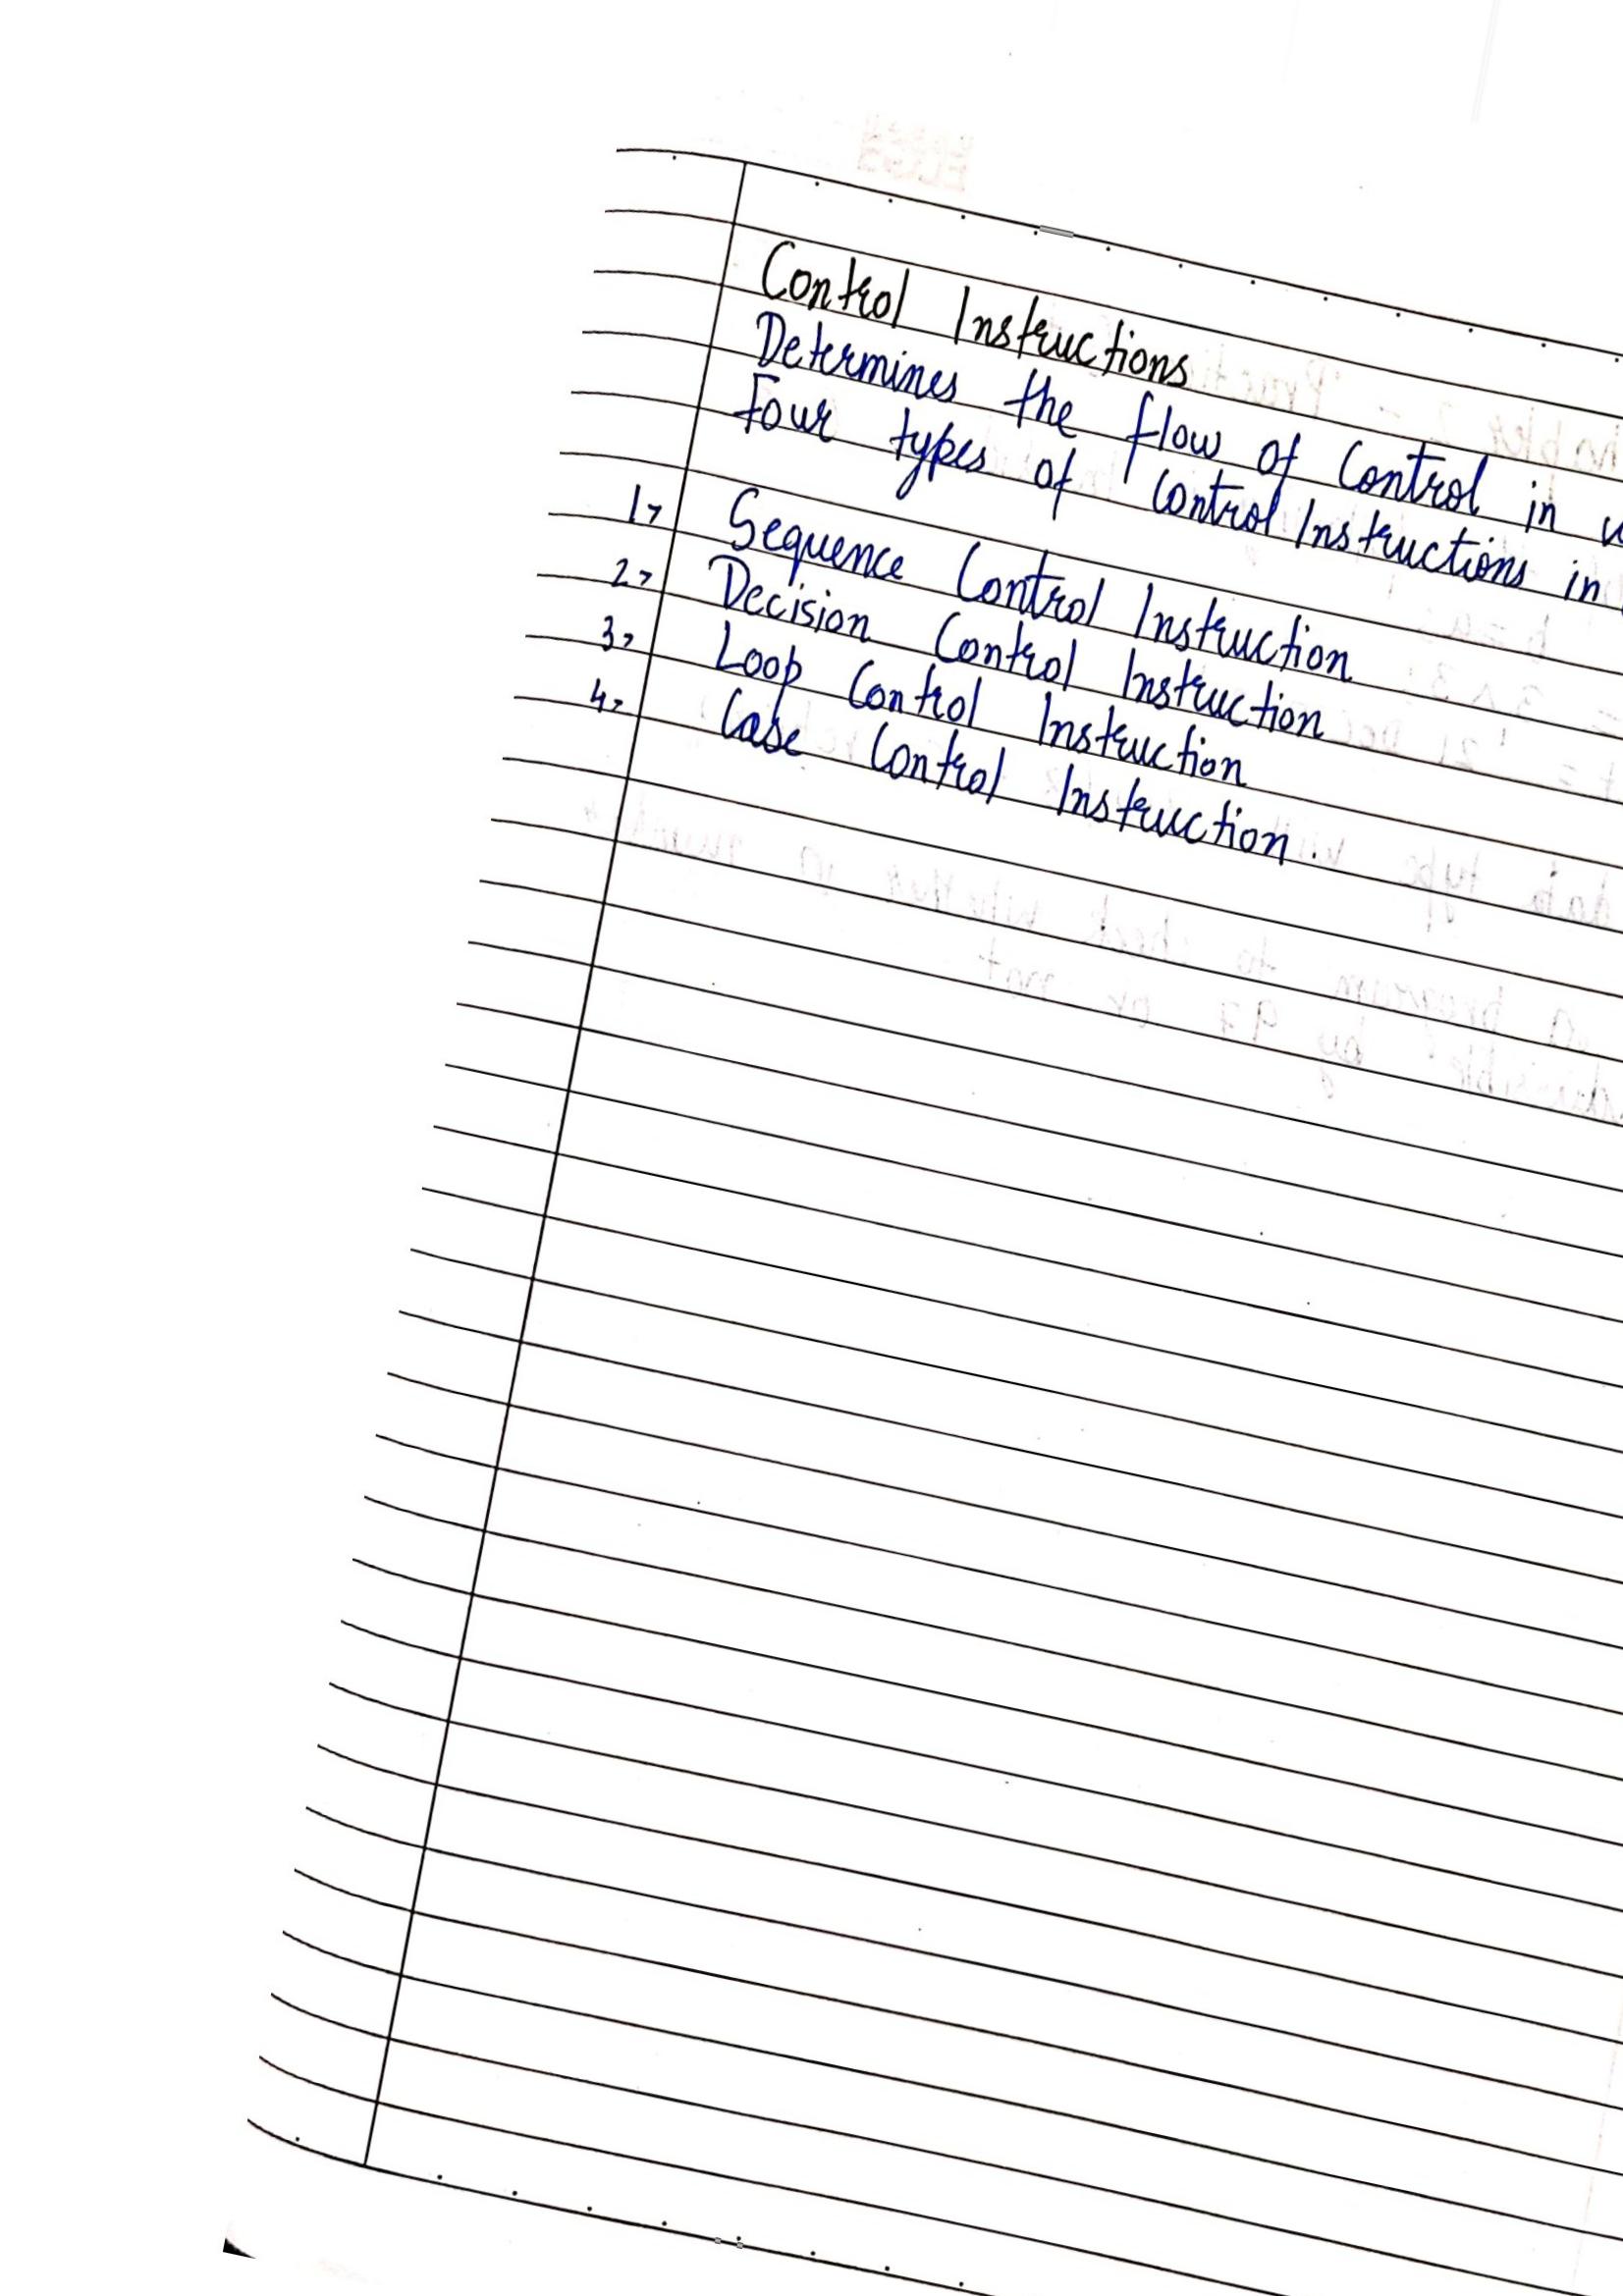 Control Instructions
Determines the flow of Control in
Four types of Control Instructions in
1> Sequence Control Instruction
2> Decision Control Instruction
3> Loop Control Instruction
4> Case Control Instruction.